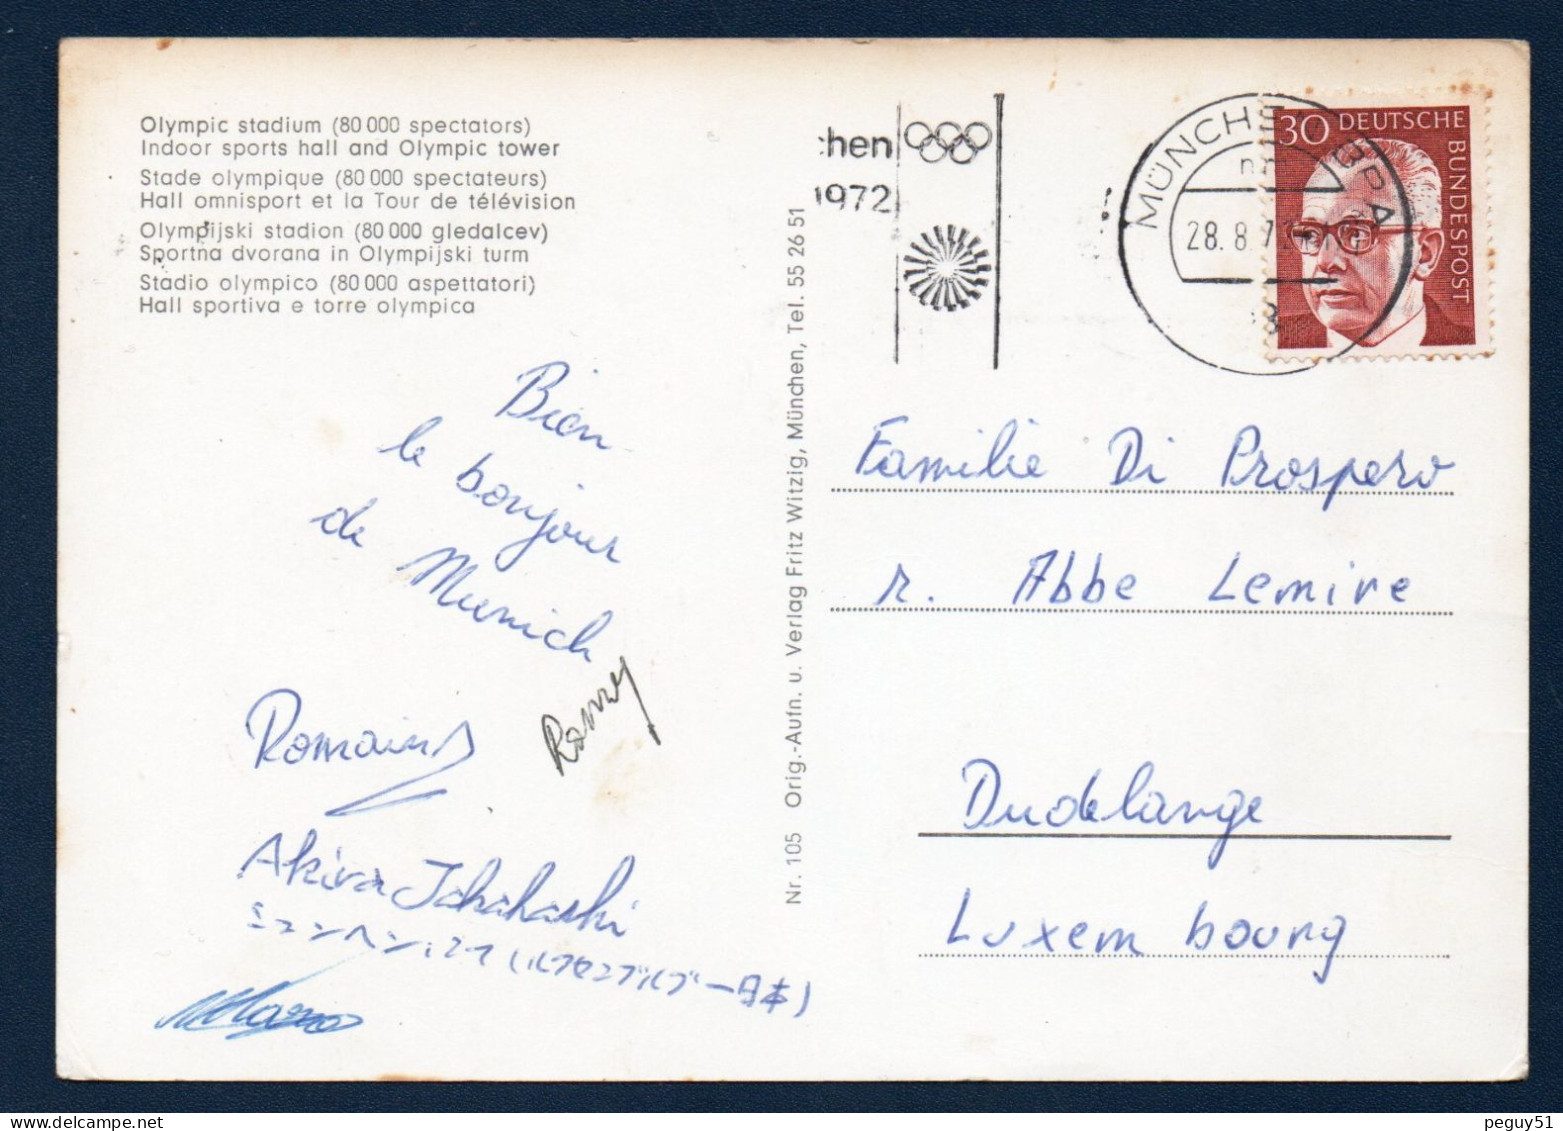 Olympic stadium (80 000 spectators)
Indoor sports hall and Olympic tower
Stade olympique (80 000 spectateurs)
Hall omnisport et la Tour de télévision
Olympijski stadion (80 000 gledalcev)
Sportna dvorana in Olympijski turm
Stadio olympico (80 000 aspettatori)
Hall sportiva e torre olympica
Bien
le bonjour
de Munich
Romain
Romy
Akira Takahashi
ミュンヘン
日本)
Nr. 105 Orig.-Aufn. u. Verlag Fritz Witzig, München, Tel. 55 26 51
chen
1972
28. 8. 7
30 DEUTSCHE
BUNDESPOST
Familie Di Prospero
r. Abbe Lemire
Dudelange
Luxembourg
peguy51